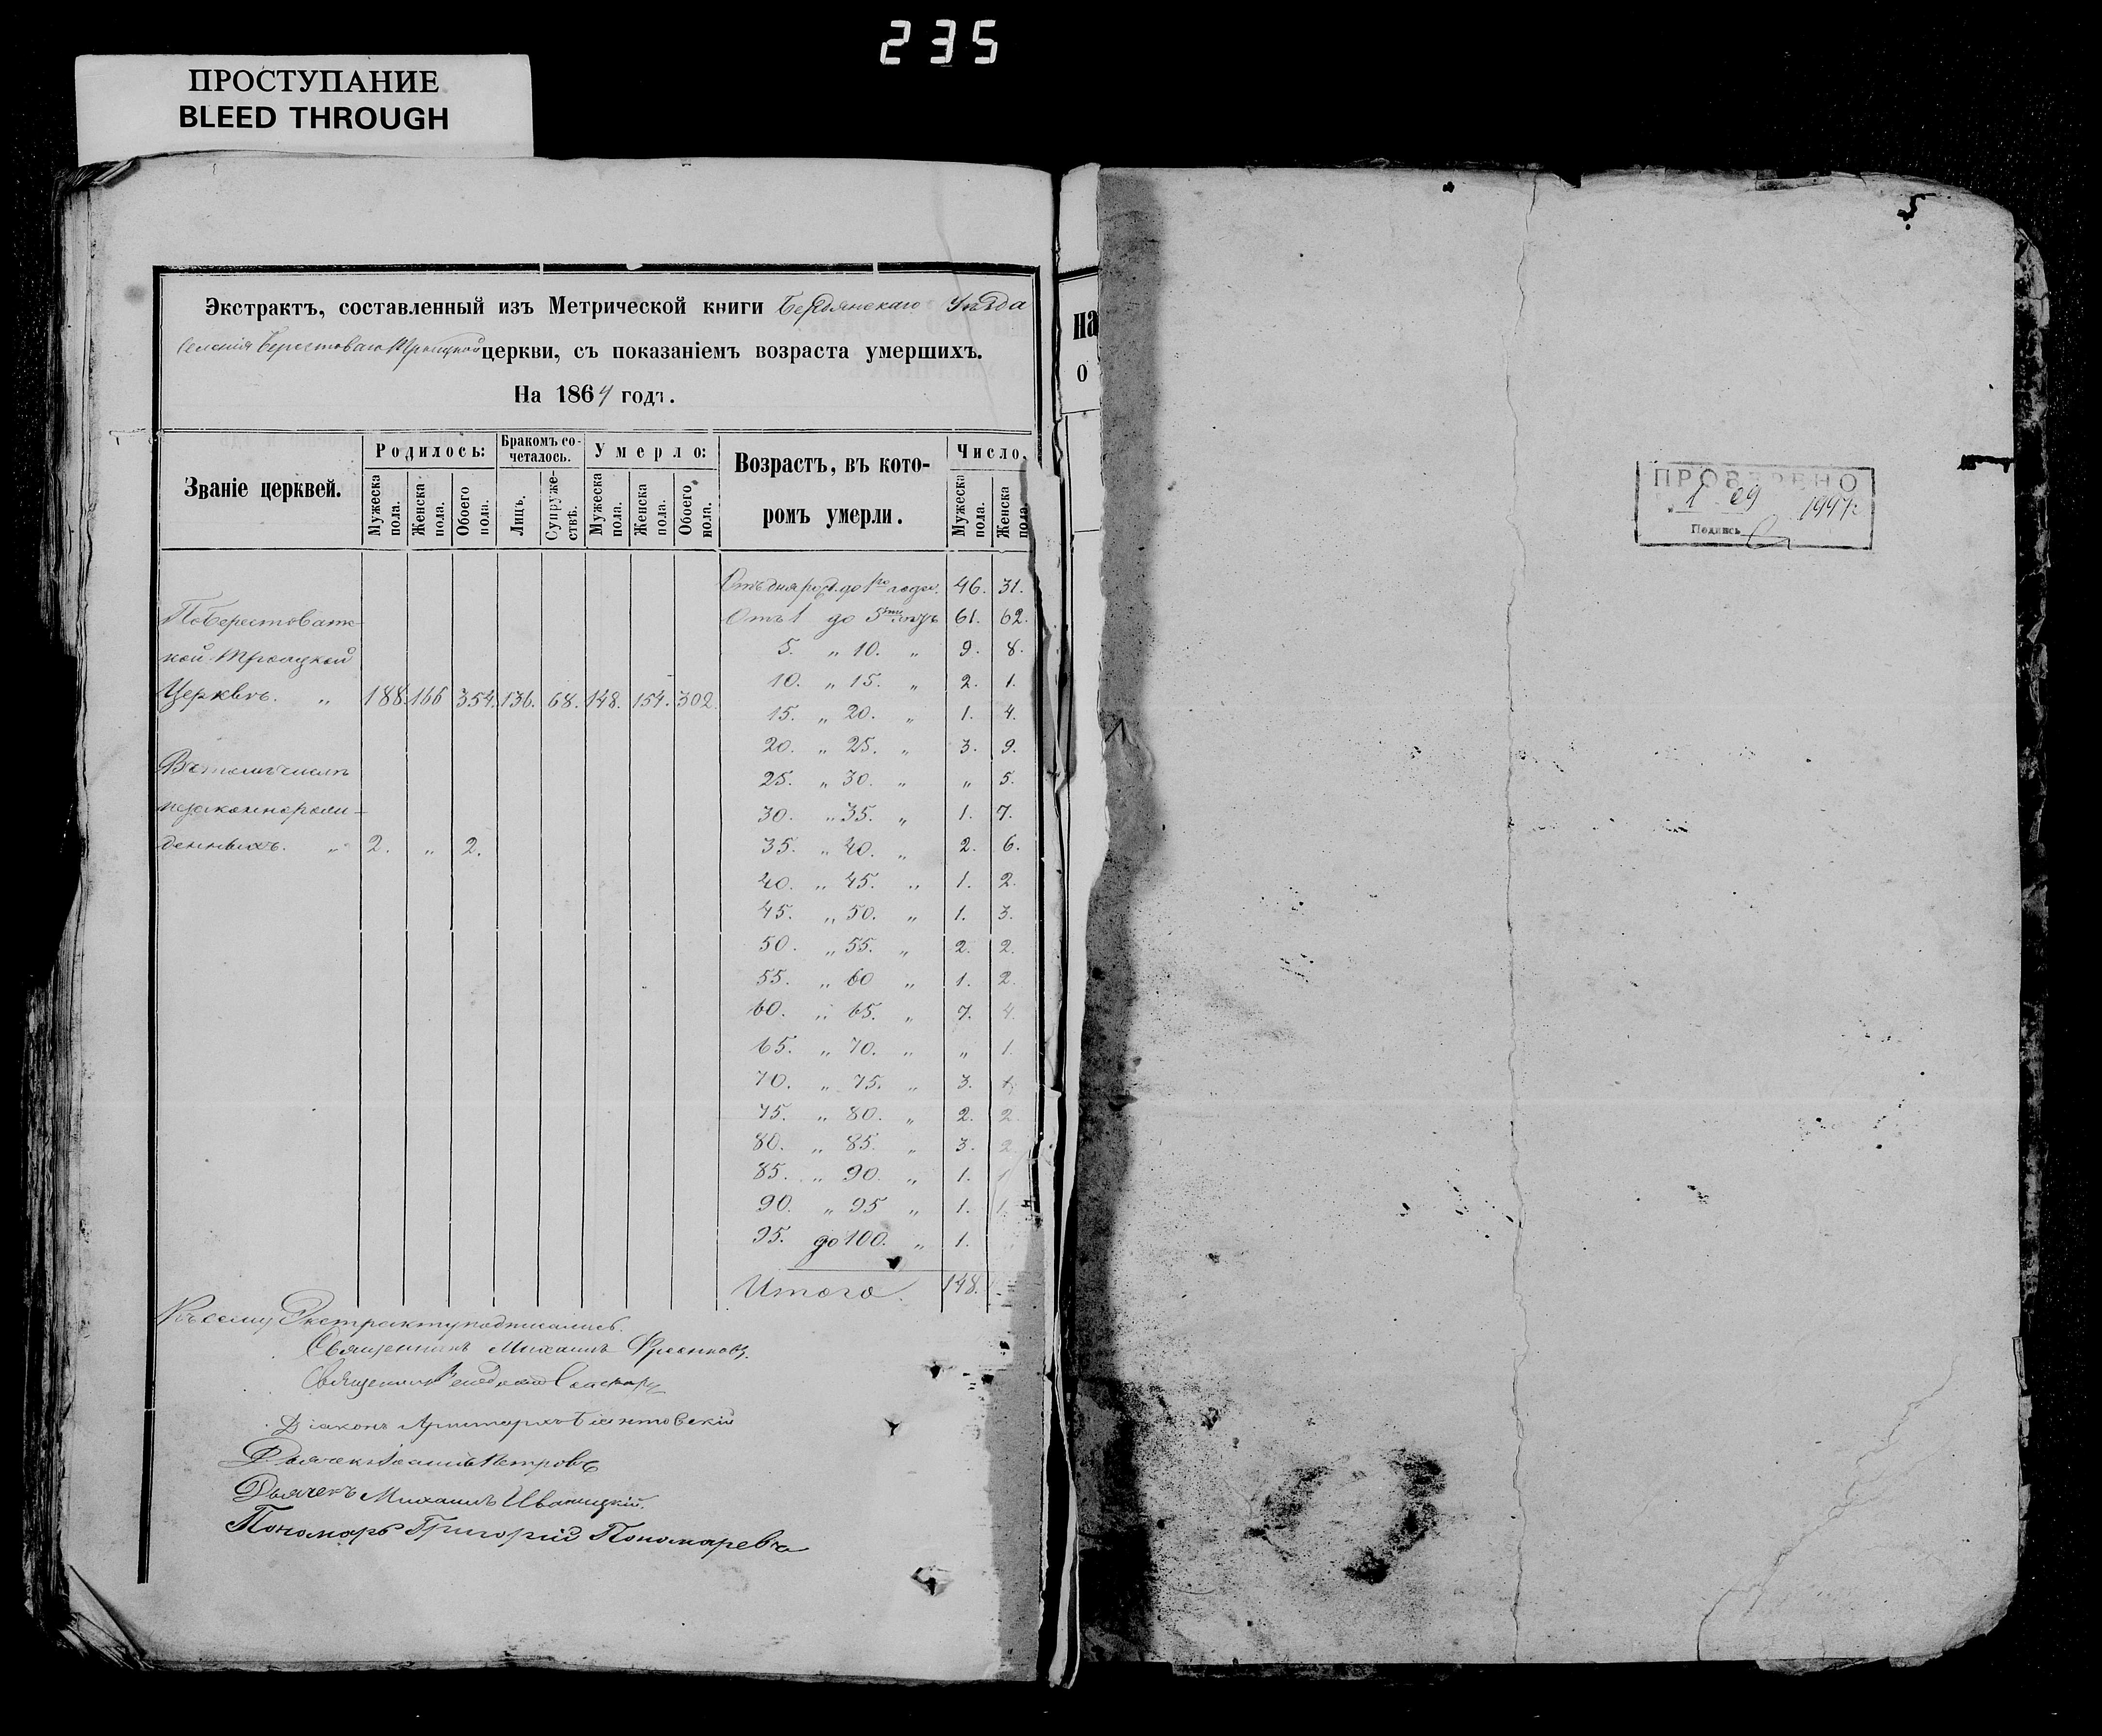 235
ПРОСТУПАНИЕ
BLEED THROUGH
Экстрактъ, составленный изъ Метрической книги Бердянскаго Уѣзда
Селенія Берестоваго Троицкой церкви, съ показаніемъ возраста умершихъ.
На 1864 годъ.
Званіе церквей.
Родилось:
Мужеска пола.
Женска пола.
Обоего пола.
Бракомъ со-
четалось.
Лицъ.
Супруже-
ствъ.
Умерло:
Мужеска пола.
Женска пола.
Обоего пола.
Возрастъ, въ кото-
ромъ умерли.
Число.
Мужеска пола.
Женска пола.
По Берестоват-
кой Троицкой
Церквѣ. „ 188. 166 354. 136. 68. 148. 154. 302.
Въ томъ числѣ
незаконнорож-
денныхъ. „ 2. „ 2.
Отъ дня рожд. до 1го года. 46. 31.
Отъ 1 до 5ти 61. 62.
5. „ 10. „ 9. 8.
10. „ 15. „ 2. 1.
15. „ 20. „ 1. 4.
20. „ 25. „ 3. 9.
25. „ 30. „ „ 5.
30. „ 35. „ 1. 7.
35. „ 40. „ 2. 6.
40. „ 45. „ 1. 2.
45. „ 50. „ 1. 3.
50. „ 55. „ 2. 2.
55. „ 60 „ 1. 2.
60. „ 65. „ 7. 4.
65. „ 70. „ „ 1.
70. „ 75. „ 3. 1.
75. „ 80. „ 2. 2.
80. „ 85. „ 3. 2
85. „ 90. „ 1. 1
90. „ 95 „ 1. 1.
95. до 100. „ 1.
Итого. 148.
Къ сему Экстракту подписались.
Священникъ Михаилъ
Священникъ
Діаконъ Аристархъ
Дьячекъ Іоаннъ Петровъ
Дьячекъ Михаилъ Иваницкій.
Пономарь Григорій Пономаревъ
на
о
ПРОВЕРЕНО
1 09 1997г
Подпись